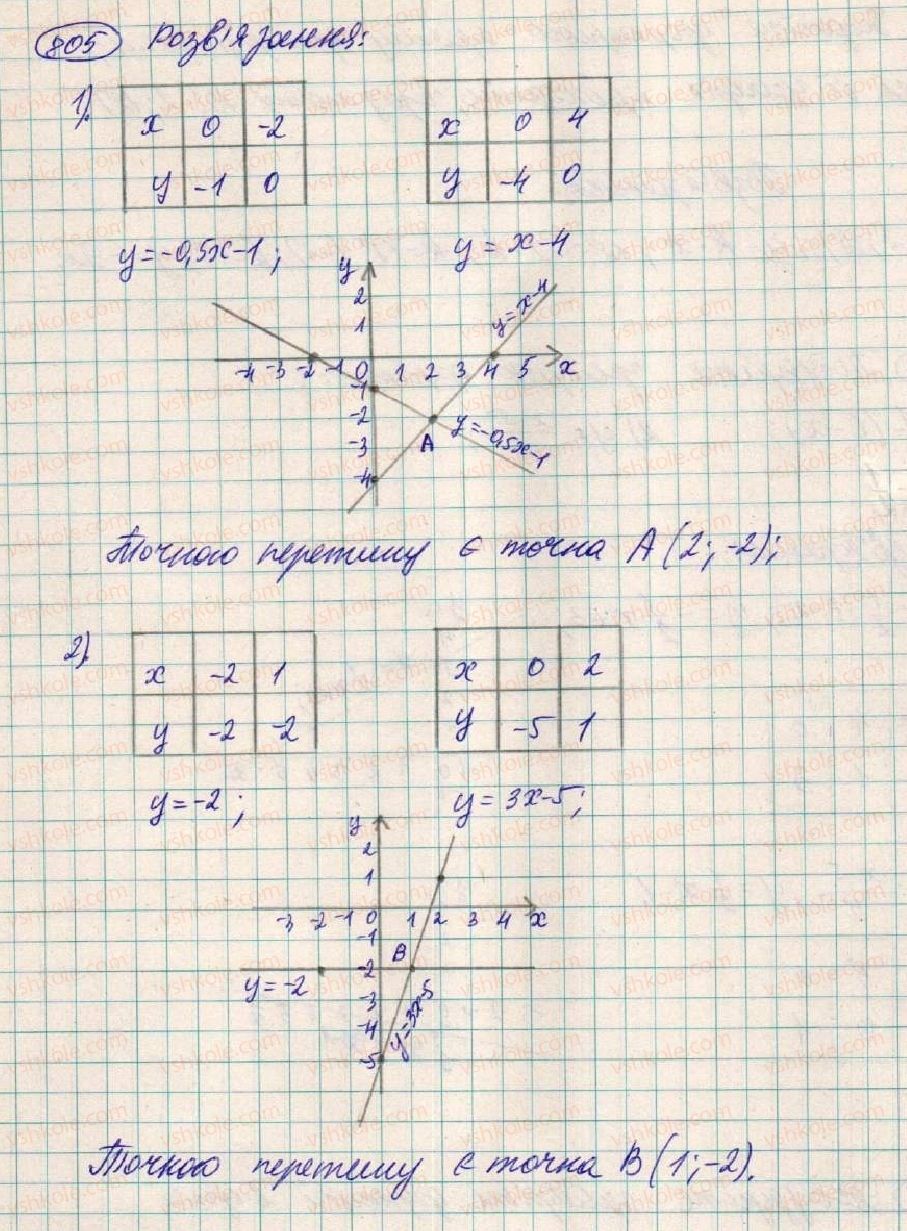 805 Розв'язання:
1).
x 0 -2
y -1 0
x 0 4
y -4 0
y = -0,5x-1;
y = x-4
y
2
1
-4 -3 -2 -1 0 1 2 3 4 5 x
-1
-2
-3
-4
A
y=x-4
y=-0,5x-1
Точкою перетину є точка A (2; -2);
2).
x -2 1
y -2 -2
x 0 2
y -5 1
y = -2;
y = 3x-5;
y
2
1
-3 -2 -1 0 1 2 3 4 x
-1
-2
-3
-4
-5
B
y = -2
y=3x-5
Точкою перетину є точка B (1; -2).
vshkole.com